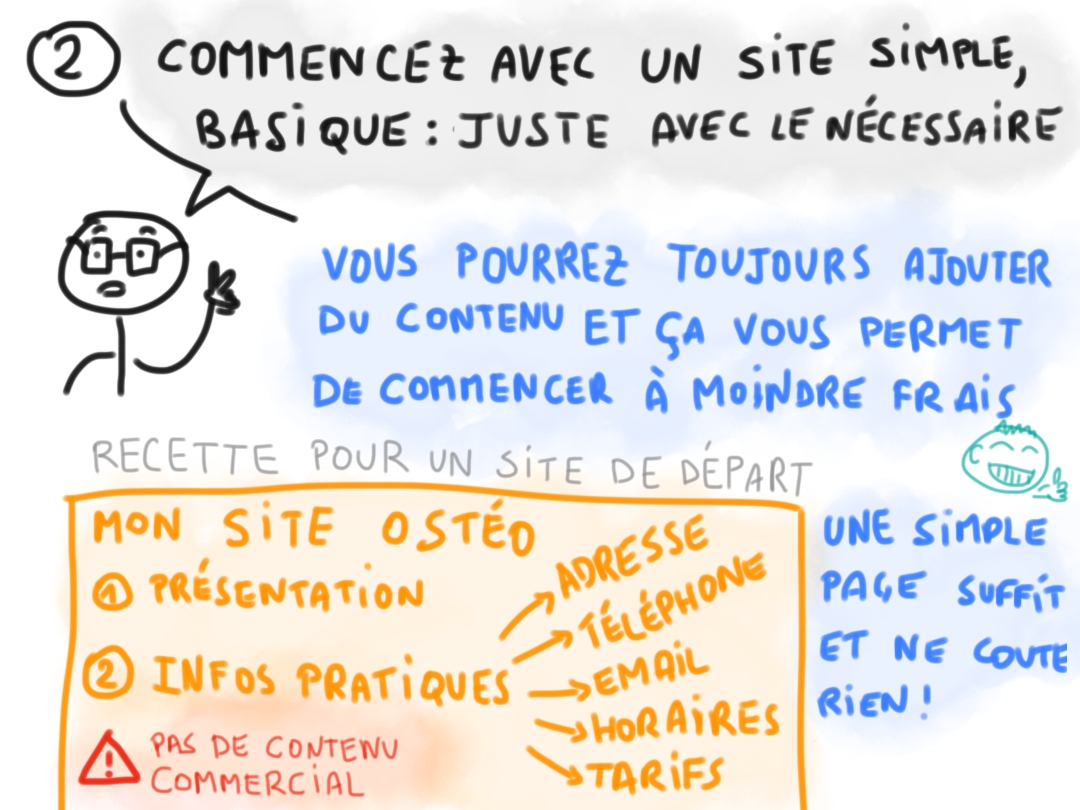 2 COMMENCEZ AVEC UN SITE SIMPLE,
BASIQUE : JUSTE AVEC LE NÉCESSAIRE
VOUS POURREZ TOUJOURS AJOUTER
DU CONTENU ET ÇA VOUS PERMET
DE COMMENCER À MOINDRE FRAIS
RECETTE POUR UN SITE DE DÉPART
MON SITE OSTÉO
1 PRÉSENTATION
2 INFOS PRATIQUES
ADRESSE
TÉLÉPHONE
EMAIL
HORAIRES
TARIFS
! PAS DE CONTENU
COMMERCIAL
UNE SIMPLE
PAGE SUFFIT
ET NE COUTE
RIEN !